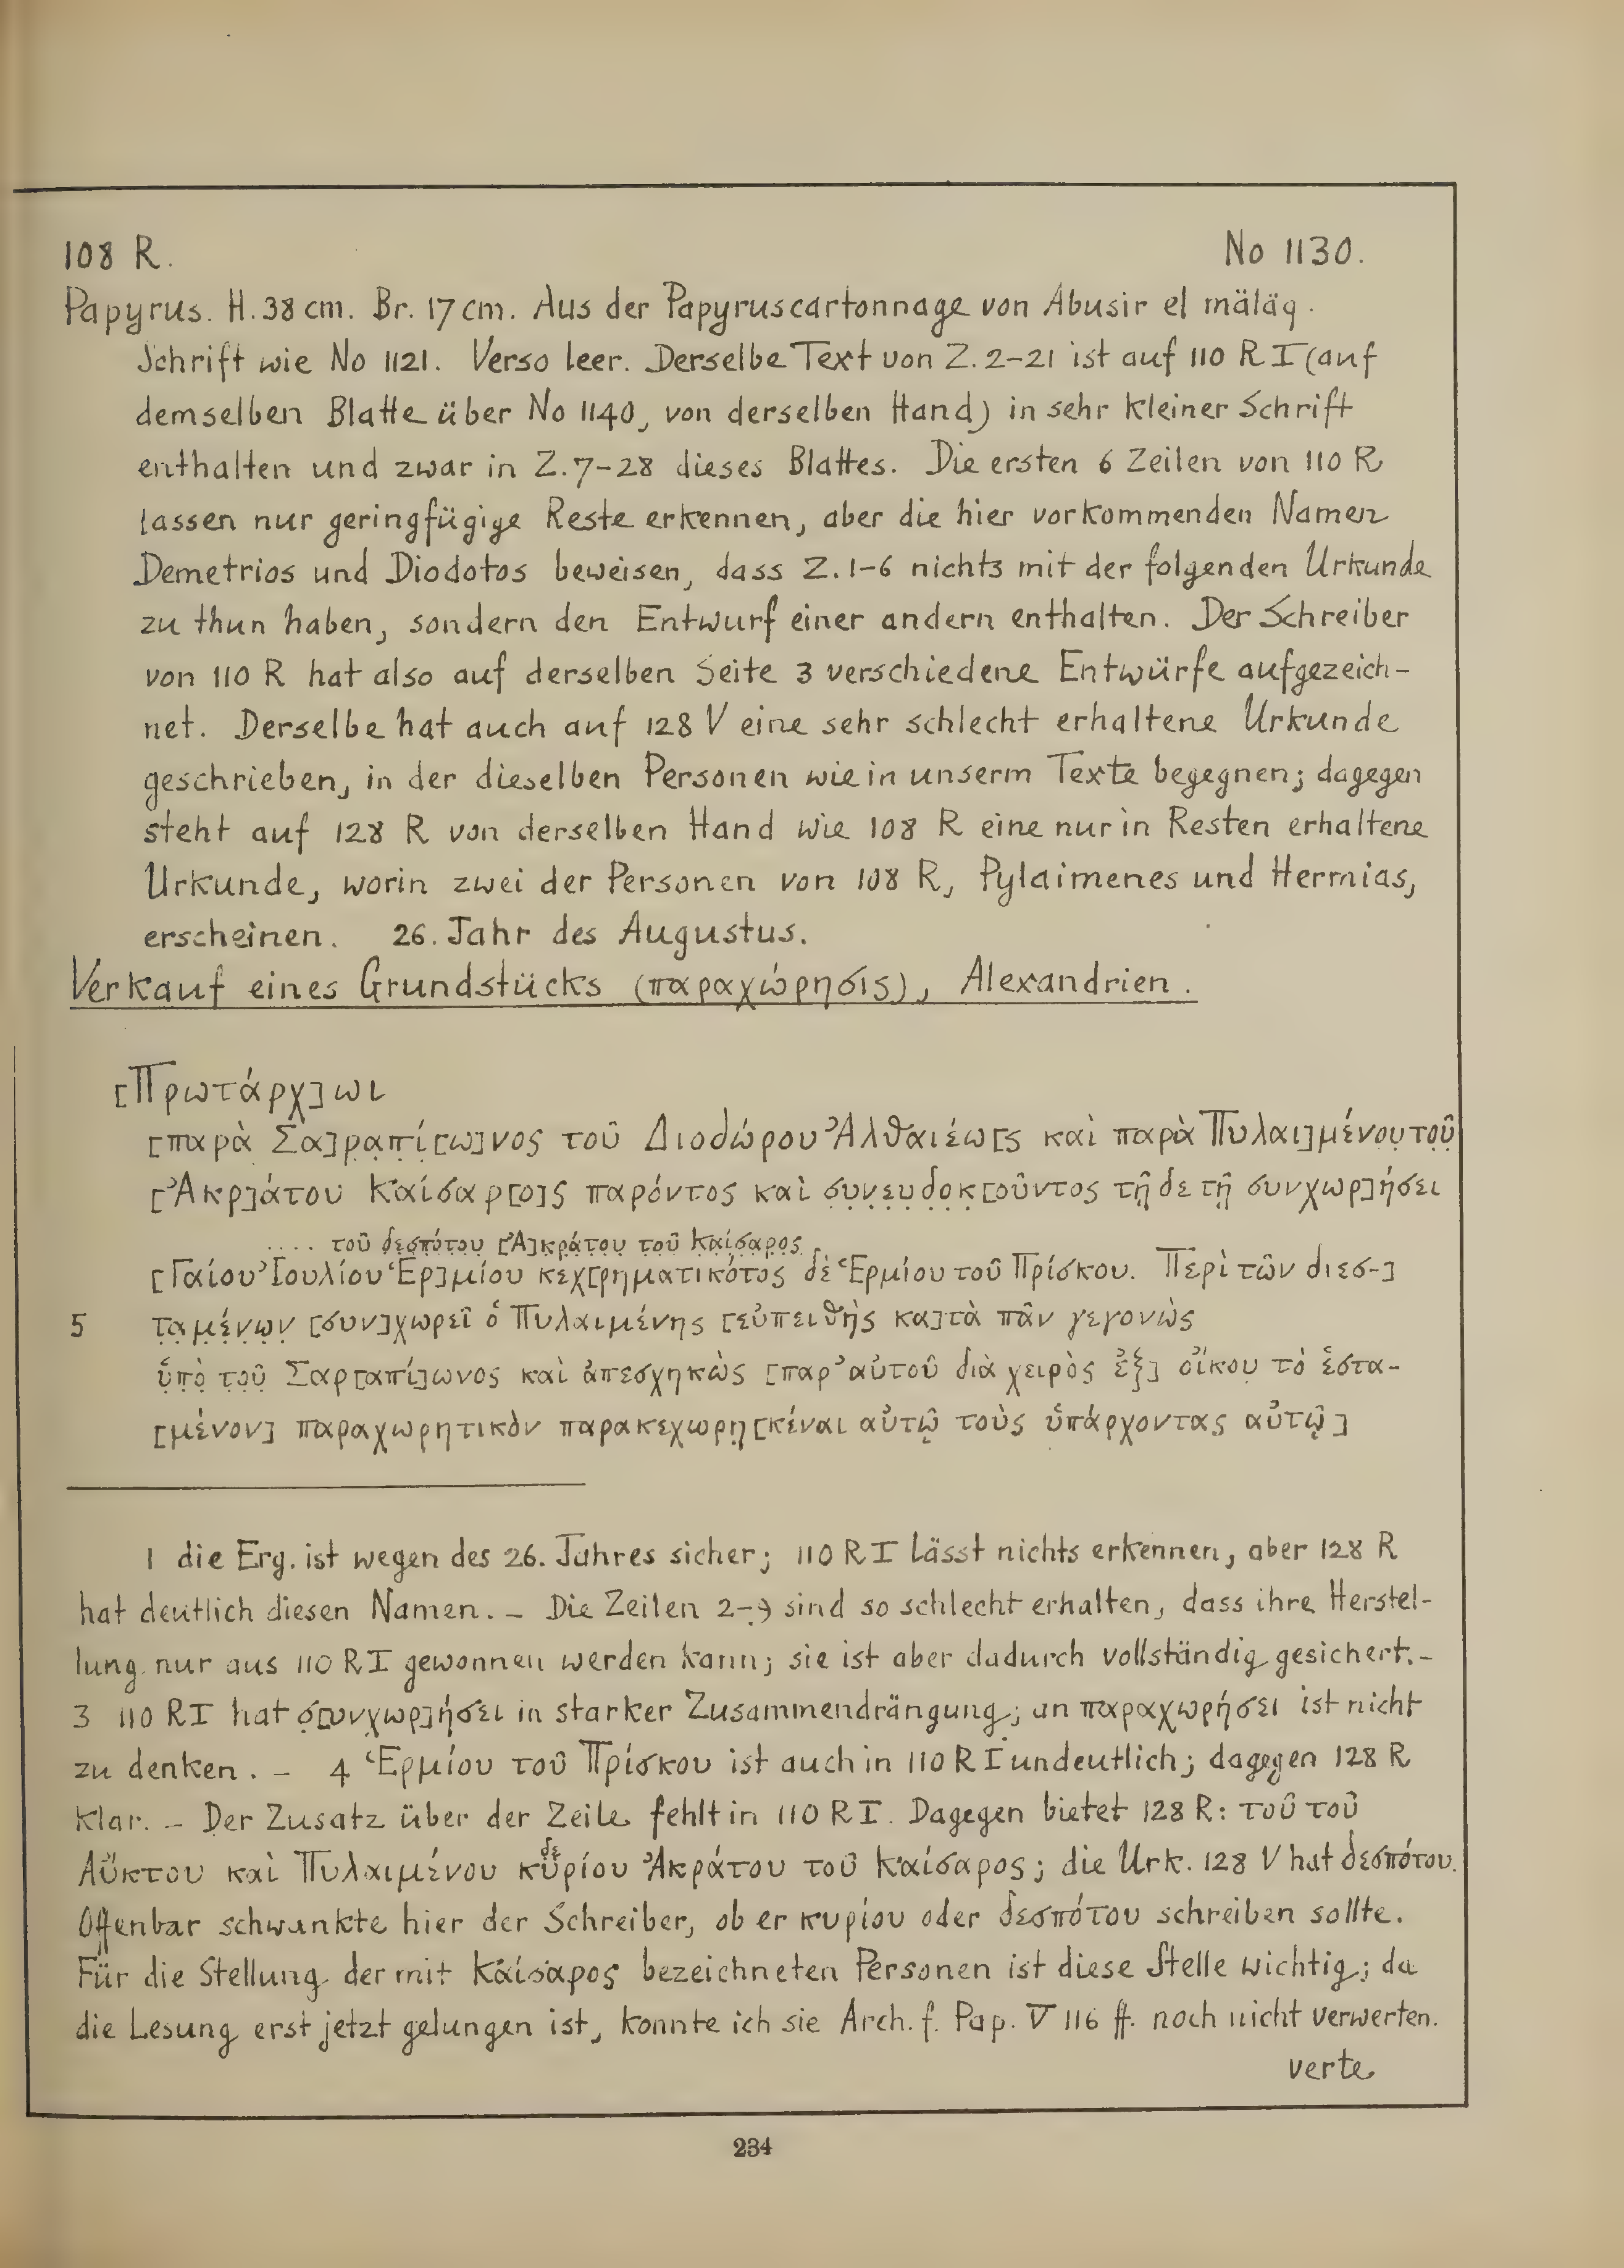 108 R. No 1130.
Papyrus. H. 38 cm. Br. 17 cm. Aus der Papyruscartonnage von Abusir el mäläq.
Schrift wie No 1121. Verso leer. Derselbe Text von Z. 2-21 ist auf 110 R I (auf
demselben Blatte über No 1140, von derselben Hand) in sehr kleiner Schrift
enthalten und zwar in Z. 7-28 dieses Blattes. Die ersten 6 Zeilen von 110 R
lassen nur geringfügige Reste erkennen, aber die hier vorkommenden Namen
Demetrios und Diodotos beweisen, dass Z. 1-6 nichts mit der folgenden Urkunde
zu thun haben, sondern den Entwurf einer andern enthalten. Der Schreiber
von 110 R hat also auf derselben Seite 3 verschiedene Entwürfe aufgezeich-
net. Derselbe hat auch auf 128 V eine sehr schlecht erhaltene Urkunde
geschrieben, in der dieselben Personen wie in unserm Texte begegnen; dagegen
steht auf 128 R von derselben Hand wie 108 R eine nur in Resten erhaltene
Urkunde, worin zwei der Personen von 108 R, Pylaimenes und Hermias,
erscheinen. 26. Jahr des Augustus.
Verkauf eines Grundstücks (παραχώρησις), Alexandrien.
[Πρωτάρχ]ωι
[παρὰ Σα]ρ̣α̣π̣ί̣[ω]νος τοῦ Διοδώρου Ἀλθαιέω[ς καὶ παρὰ Πυλαι]μένο̣υ̣ τ̣ο̣ῦ̣
[Ἀκρ]άτου Καίσαρ[ο]ς παρόντος καὶ σ̣υ̣ν̣ε̣υ̣δ̣ο̣κ̣[οῦντος τῇδε τῇ συνχωρ]ήσει
.... τοῦ δ̣ε̣σ̣π̣ό̣τ̣ο̣υ̣ [Ἀ]κ̣ρ̣ά̣τ̣ο̣υ̣ τ̣ο̣ῦ̣ Κ̣α̣ί̣σ̣α̣ρ̣ο̣ς̣
[Γαίου Ἰουλίου Ἑρ]μίου κεχ[ρηματικότος δὲ Ἑρμίου τοῦ Πρίσκου. Περὶ τῶν διεσ-]
5 τ̣α̣μ̣έ̣ν̣ω̣ν̣ [συν]χωρεῖ ὁ Πυλαιμένης [εὐπειθὴς κα]τὰ πᾶν γεγονὼς
ὑ̣π̣ὸ̣ τ̣ο̣ῦ̣ Σαρ[απί]ωνος καὶ ἀπεσχηκὼς [παρ' αὐτοῦ διὰ χειρὸς ἐξ] οἴκου τὸ ἑστα-
[μένον] παραχωρητικὸν παρακεχωρη̣[κέναι αὐτῷ τοὺς ὑπάρχοντας αὐτῷ]
1 die Erg. ist wegen des 26. Jahres sicher; 110 R I lässt nichts erkennen, aber 128 R
hat deutlich diesen Namen. – Die Zeilen 2-9 sind so schlecht erhalten, dass ihre Herstel-
lung nur aus 110 R I gewonnen werden kann; sie ist aber dadurch vollständig gesichert. –
3 110 R I hat σ̣[υνχωρ]ήσει in starker Zusammendrängung; an παραχωρήσει ist nicht
zu denken. – 4 Ἑρμίου τοῦ Πρίσκου ist auch in 110 R I undeutlich; dagegen 128 R
klar. – Der Zusatz über der Zeile fehlt in 110 R I. Dagegen bietet 128 R: τοῦ τοῦ
δε
Αὔκτου καὶ Πυλαιμένου κυρίου Ἀκράτου τοῦ Καίσαρος; die Urk. 128 V hat δεσπότου.
Offenbar schwankte hier der Schreiber, ob er κυρίου oder δεσπότου schreiben sollte.
Für die Stellung der mit Καίσαρος bezeichneten Personen ist diese Stelle wichtig; da
die Lesung erst jetzt gelungen ist, konnte ich sie Arch. f. Pap. V 116 ff. noch nicht verwerten.
verte
234